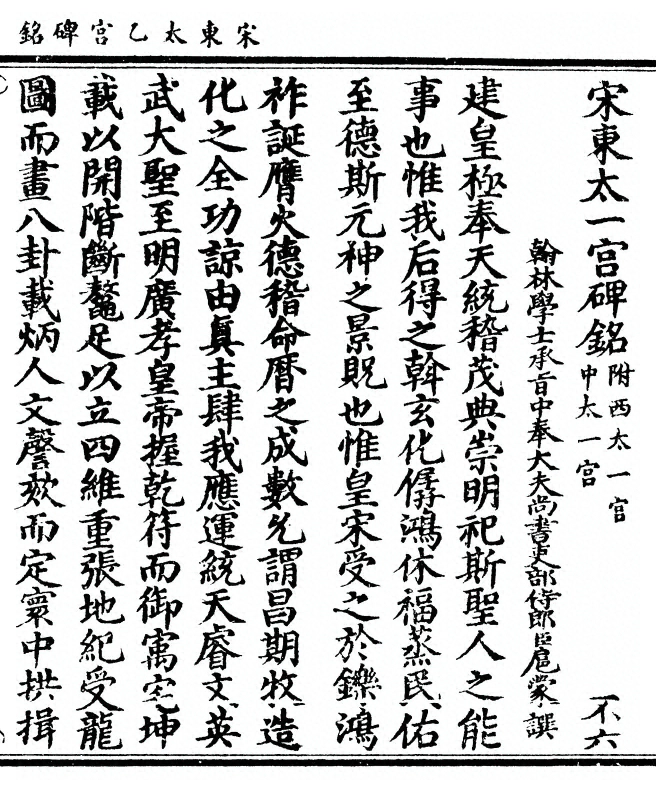 宋東太乙宮碑銘
宋東太一宮碑銘附西太一宮中太一宮
不六
翰林學士承旨中奉大夫尚書吏部侍郎臣扈蒙撰
建皇極奉天統稽茂典崇明祀斯聖人之能
事也惟我后得之斡玄化儕鴻休福蒸民佑
至德斯元神之景貺也惟皇宋受之於鑠鴻
祚誕膺火德稽命曆之成數允謂昌期牧造
化之全功諒由真主肆我應運統天睿文英
武大聖至明廣孝皇帝握乾符而御寓定坤
載以開階斷鼇足以立四維重張地紀受龍
圖而畫八卦載炳人文謦欬而定寰中拱揖